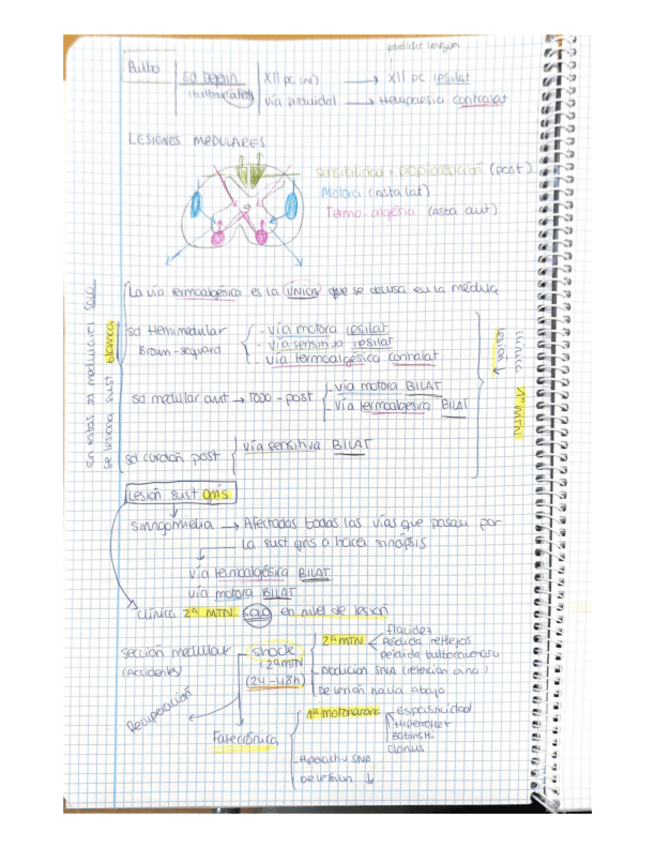 parálisis lengua
Bulbo
Sd Dejerin XII pc (N) → XII pc ipsilat
(bulbar) vía piramidal → Hemiparesia contralat
LESIONES MEDULARES
sensibilidad + propiocepción (post)
Motora (asta lat)
Termo-algésia (asta ant)
La vía termoalgésica es la ÚNICA que se decusa en la médula
sd Hemimedular
Brown-sequard
- vía motora ipsilat
- vía sensitiva ipsilat
- vía termoalgésica contralat
sd medular ant → TODO - post
- via motora BILAT
- vía termoalgesica BILAT
sd cordon post
vía sensitiva BILAT
En estos sd medulares solo
se lesiona sust blanca
clínica 1ª MTN
lesión ↓
Lesión sust gris
siringomielia → Afectadas todas las vías que pasan por
la sust gris a hacer sinápsis
vía termoalgésica BILAT
vía motora BILAT
clínica 2ª MTN en nivel de lesión
sección medular
(Accidentes)
shock
(2ª MTN)
(24-48h)
2ª MTN
flacidez
pérdida reflejos
pérdida bulbocavernoso
SNA (retención orina)
De lesión hacia abajo
Recuperación
Fase crónica
1ª motoneurona
- Espasticidad
Hiperreflex
Babinski
clonus
- Hiperactiv SNA
De lesion ↓